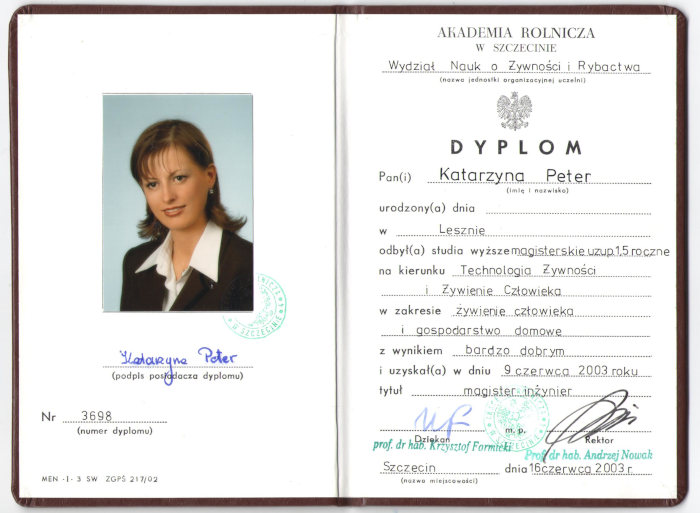 Katarzyna Peter
(podpis posiadacza dyplomu)
Nr 3698
(numer dyplomu)
MEN -I- 3 SW ZGPŚ 217/02
AKADEMIA ROLNICZA
W SZCZECINIE
Wydział Nauk o Żywności i Rybactwa
(nazwa jednostki organizacyjnej uczelni)
DYPLOM
Pan(i) Katarzyna Peter
(imię i nazwisko)
urodzony(a) dnia
w Lesznie
odbył(a) studia wyższe magisterskie uzup.1,5 roczne
na kierunku Technologia Żywności
i Żywienie Człowieka
w zakresie żywienie człowieka
i gospodarstwo domowe
z wynikiem bardzo dobrym
i uzyskał(a) w dniu 9 czerwca 2003 roku
tytuł magister inżynier
Dziekan m. p. Rektor
prof. dr hab. Krzysztof Formicki
Prof. dr hab. Andrzej Nowak
Szczecin dnia 16 czerwca 2003 r.
(nazwa miejscowości)